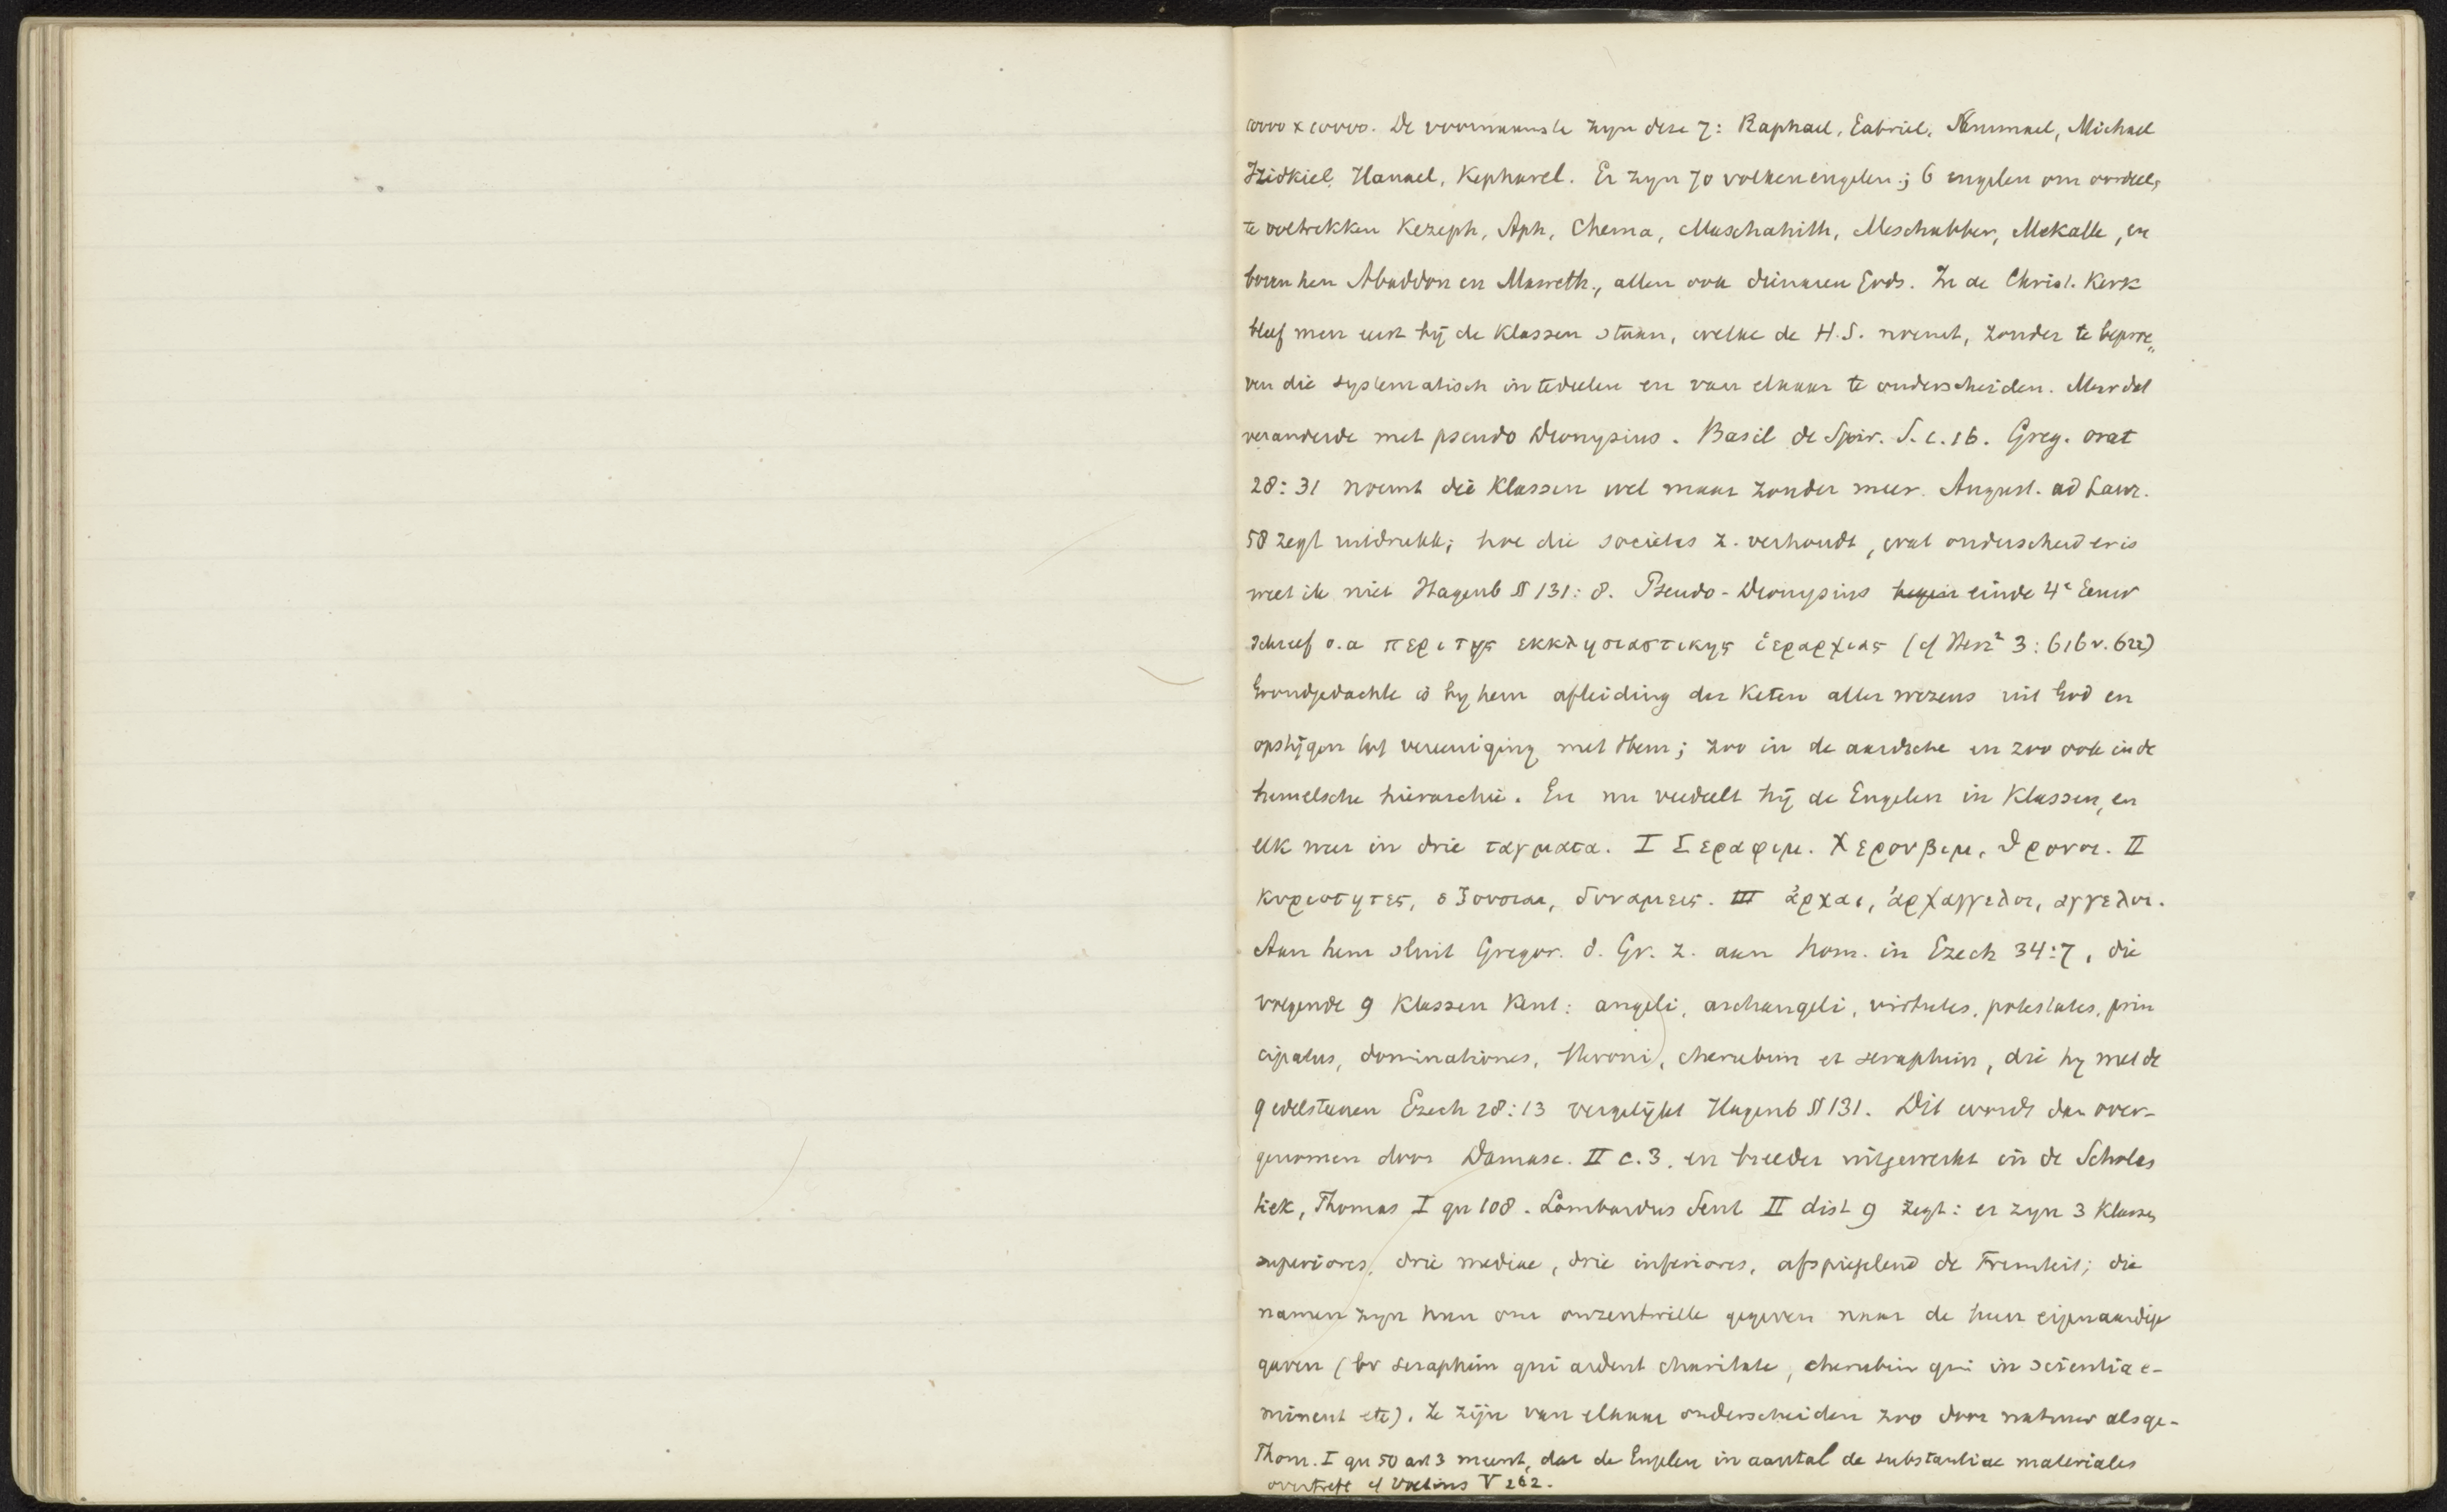 10000 x 10000. De voornaamste zyn deze 7: Raphael, Gabriel, Sammael, Michael
Izidkiel, Hanael, Kepharel. Er zyn 70 volkenengelen; 6 engelen om oordeel,
te voltrekken Kezeph, Aph, Chema, Maschahith, Meschabber, Mekalle, en
boven hen Abaddon en Maweth., allen ook dienaren Gods. In de Christ. Kerk
bleef men eerst bij de klassen staan, welke de H.S. noemt, zonder te beproe„
ven die systematisch in te deelen en van elkaar te onderscheiden. Maar dat
veranderde met pseudo Dionysius. Basil de Spir. S. c. 16. Greg. orat
28:31 noemt die klassen wel maar zonder meer. August. ad Laur.
58 zegt uitdrukk; hoe die societas z. verhoudt, wat onderscheid er is
weet ik niet Hagenb § 131: 8. Pseudo-Dionysius begin einde 4e Eeuw
schreef o.a περι της εκκλησιαστικης ἱεραρχιας (cf Herz² 3: 616 v. 622)
Grondgedachte is by hem afleiding der keten aller wezens uit God en
opstijgen tot vereeniging met Hem; zoo in de aardsche en zoo ook in de
hemelsche hierarchie. En nu verdeelt hij de Engelen in klassen, en
elk weer in drie ταγματα. I Σεραφιμ. Χερουβιμ, θρονοι. II
κυριοτητες, εξουσιαι, δυναμεις. III ἀρχαι, ἀρχαγγελοι, αγγελοι.
Aan hem sluit Gregor. d. Gr. z. aan hom. in Ezech 34:7, die
volgende 9 klassen kent: angeli, archangeli, virtutes, potestates, prin
cipatus, dominationes, throni, cherubim et seraphim, die hy met de
9 edelsteenen Ezech 28:13 vergelijkt Hagenb § 131. Dit wordt dan over-
genomen door Damasc. II c. 3. en breeder uitgewerkt in de Scholas
tiek, Thomas I qu 108. Lombardus Sent II dist 9 zegt: er zyn 3 klasses
superiores, drie mediae, drie inferiores, afspiegelend de Triniteit; die
namen zyn hun om onzentwille gegeven naar de hun eigenaardige
gaven (bv seraphim qui ardent charitate, cherubim qui in scientia e-
minent etc). Ze zijn van elkaar onderscheiden zoo door natuur als ge-
Thom. I qu 50 art 3 meent, dat de Engelen in aantal de substantiae materiales
overtreft cf Voetius V 262.